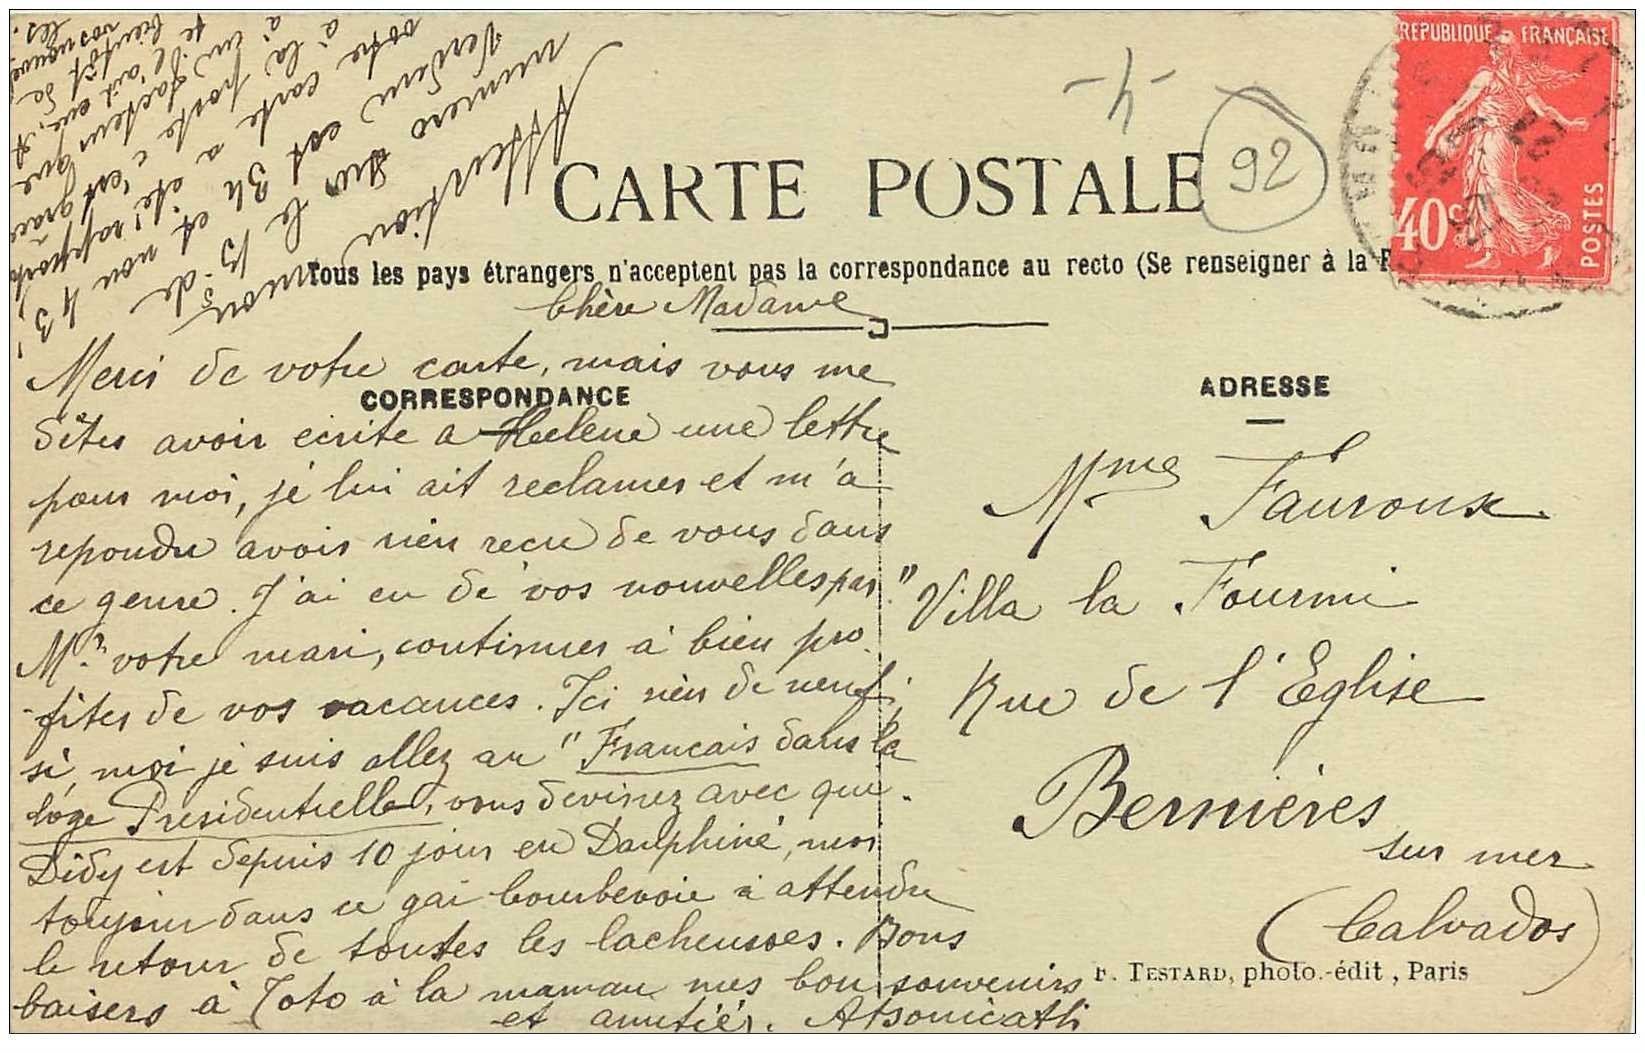 REPUBLIQUE FRANÇAISE
40c
POSTES
-4-
92
CARTE POSTALE
Tous les pays étrangers n'acceptent pas la correspondance au recto (Se renseigner à la
Attention mon
numero sur le B.s de
Verdun est 34 et non 43,
votre carte a été rapporté
à la poste c'est grace
à un facteur que
je l'ait eue. A
bientôt de
vos nouvel
les.
Chère Madame
Merci de votre carte, mais vous me
CORRESPONDANCE
dites avoir ecrite a Helene une lettre
pour moi, je lui ait reclamer et m'a
repondu avoir rien recu de vous dans
ce genre. J'ai eu de vos nouvelles par
Mr votre mari, continuer à bien pro
fiter de vos vacances. Ici rien de neuf,
si, moi je suis allez au "Francais dans la
loge Presidentielle, vous devinez avec qui.
Didy est depuis 10 jour en Dauphiné, moi
toujour dans ce gai Courbevoie à attendre
le retour de toutes les lacheuses. Bons
baisers à Toto à la maman mes bon souvenirs
et amitiés.
ADRESSE
Mme Fauroux
"Villa la Fourmi
Rue de l'Eglise
Bernières
sur mer
(Calvados)
TESTARD, photo.-édit, Paris